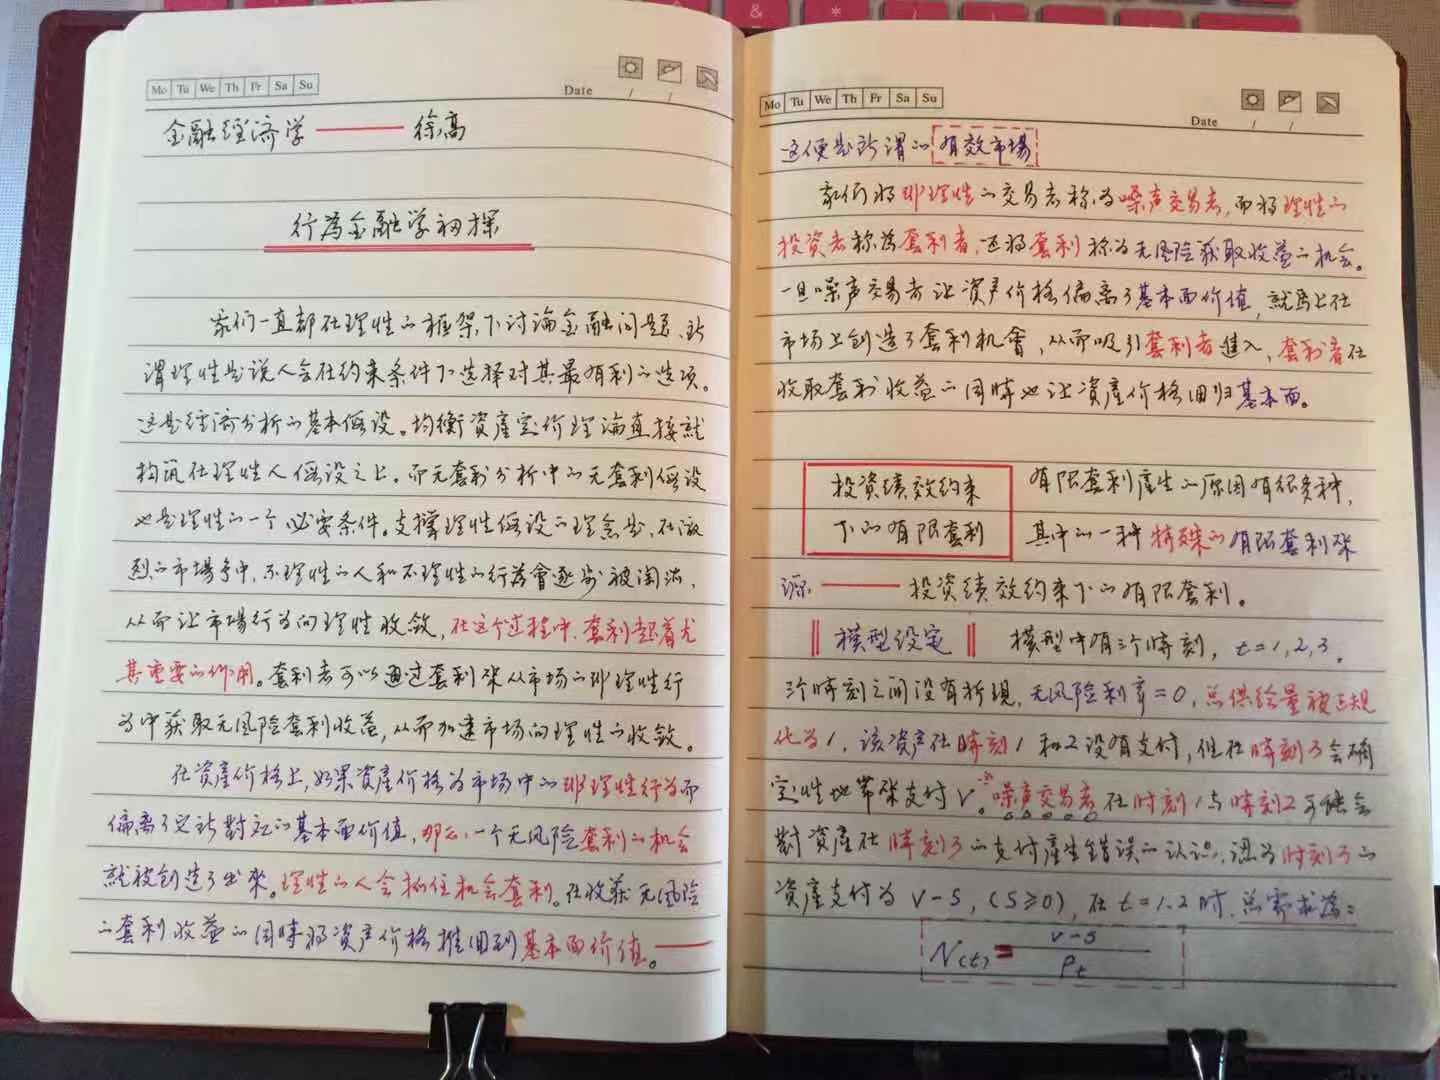 &
*
(
)
Mo Tu We Th Fr Sa Su
Date / /
金融經济学 —— 徐高
行为金融学初探
我们一直都在理性的框架下讨论金融问题、所
谓理性是说人会在约束条件下选择对其最有利的选项。
这是经济分析的基本假设。均衡資產定价理論直接就
构筑在理性人假设之上。而无套利分析中的无套利假设
也是理性的一个必要条件。支撑理性假设的理念是，在激
烈的市場争中，不理性的人和不理性的行為會逐步被淘汰，
从而让市場行为向理性收敛，在这个过程中，套利起着尤
其重要的作用。套利者可以通过套利来从市场的非理性行
为中获取无风险套利收益，从而加速市场向理性的收敛。
在资產价格上，如果资產价格为市场中的非理性行为而
偏离了它所對应的基本面价值，那么，一个无风险套利的机会
就被创造了出來。理性的人会抓住机会套利。在收获无风险
的套利收益的同時将资产价格推回到基本面价值。——
Mo Tu We Th Fr Sa Su
Date / /
这便是所谓的有效市場
我们将非理性的交易者称为噪声交易者，而将理性的
投资者称為套利者，还将套利称为无风险获取收益的机会。
一旦噪声交易者让资产价格偏离了基本面价值，就馬上在
市场上创造了套利机會，从而吸引套利者進入，套利者在
收取套利收益的同時也让资產价格回归基本面。
投资绩效约束
下的有限套利
有限套利產生的原因有很多种，
其中的一种特殊的有限套利来
源 —— 投资绩效约束下的有限套利。
模型设定 模型中有三个時刻，t=1,2,3，
三个時刻之间没有折現，无风险利率=0，总供给量被正规
化为1，该资產在時刻1和2没有支付，但在時刻3会确
定性地带来支付V。噪声交易者在时刻1与時刻2可能会
對资產在時刻3的支付產生錯误的认识，認为时刻3的
资產支付为 V-S，(S≥0)，在t=1.2时，总需求為：
N(t) = V-S / Pt